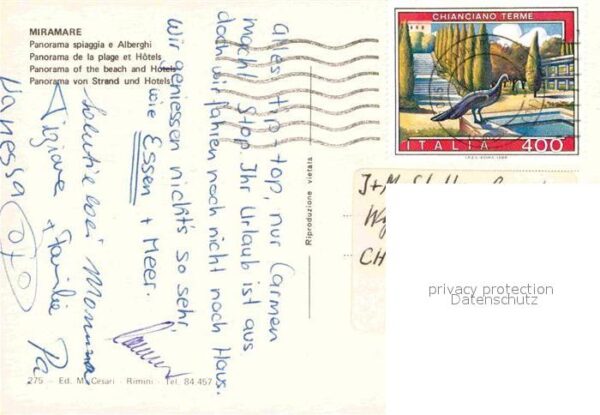 MIRAMARE
Panorama spiaggia e Alberghi
Panorama de la plage et Hôtels
Panorama of the beach and Hotels
Panorama von Strand und Hotels
CHIANCIANO TERME
ITALIA 400
alles tip-top, nur Carmen
macht Stop. Ihr Urlaub ist aus
doch wir fahren noch nicht nach Haus.
Wir geniessen nicht's so sehr,
wie Essen + Meer.
Mamma
+ Familie
Vanessa
Riproduzione vietata
CH
275 - Ed. M. Cesari - Rimini - Tel. 84.457
privacy protection
Datenschutz